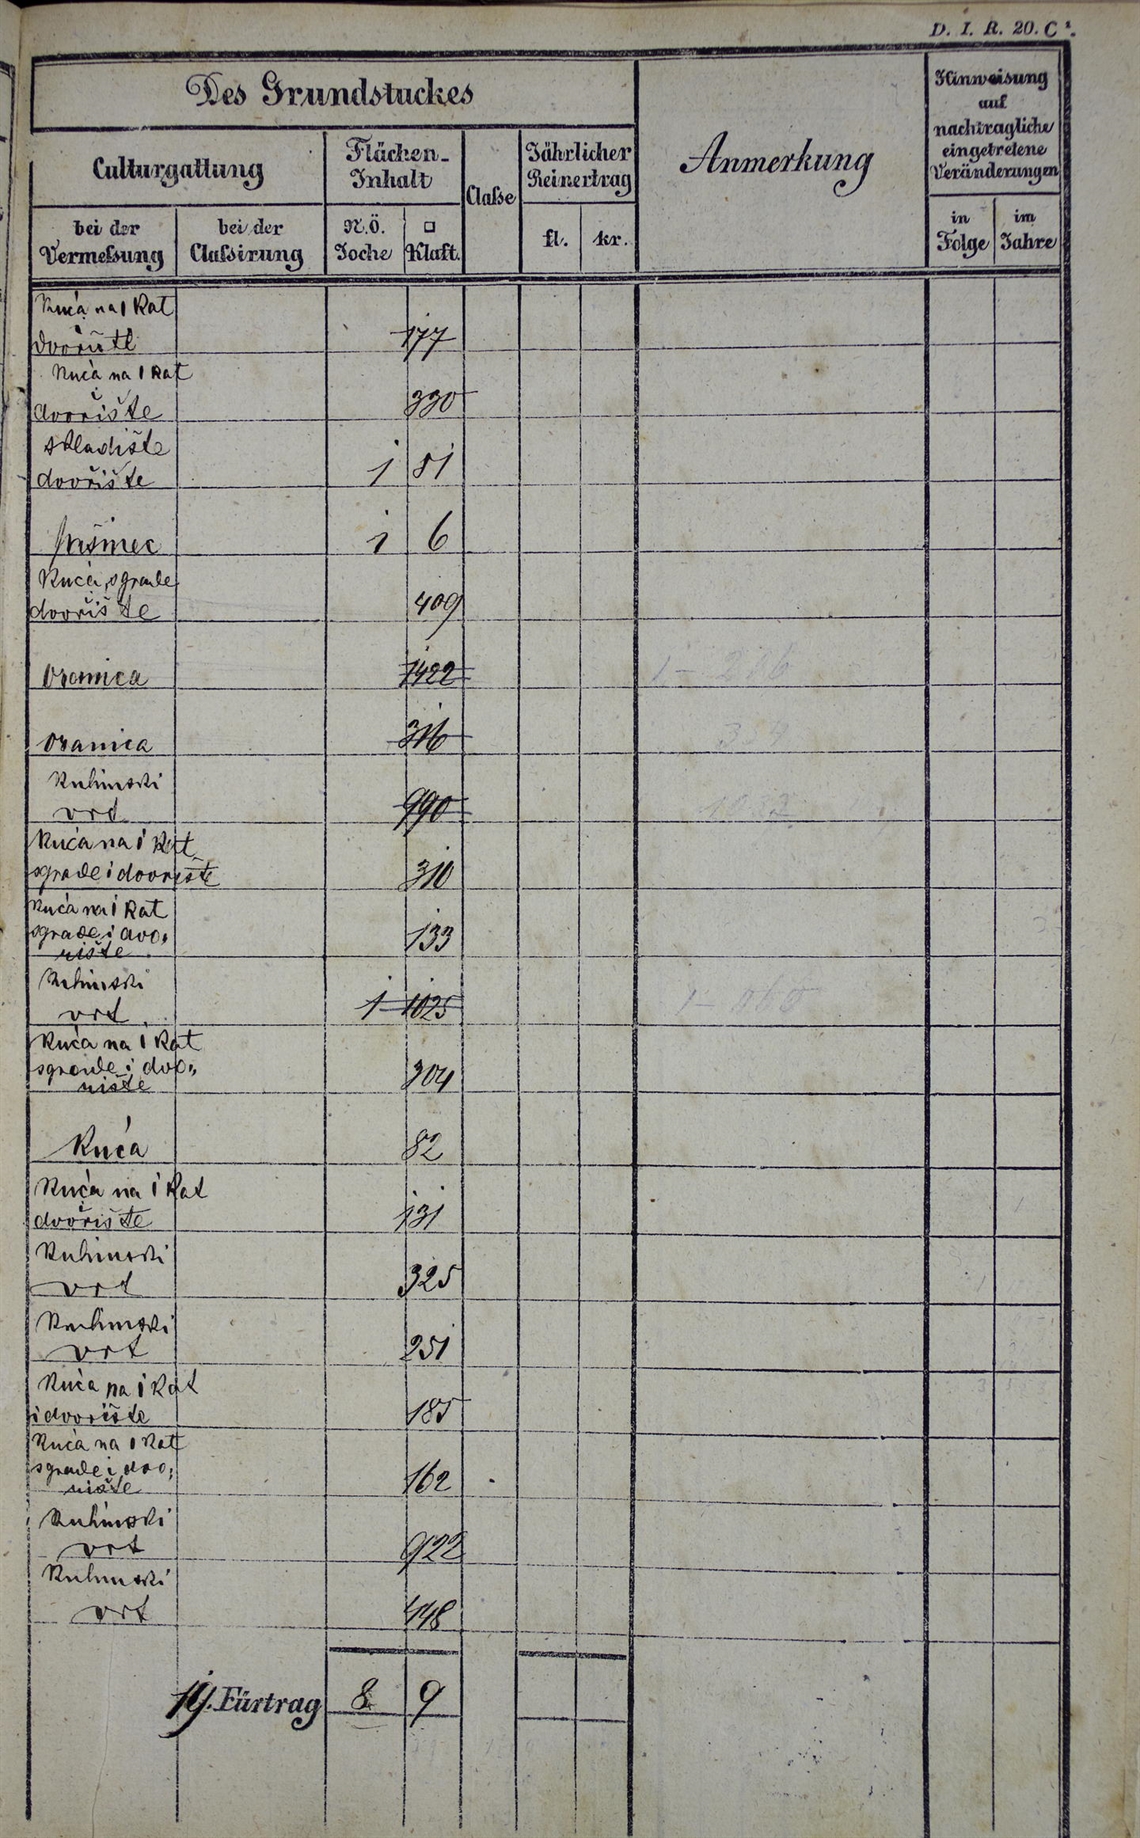 D. I. R. 20. C².
Des Grundstuckes
Culturgattung
Flächen-
Inhalt
Claſse
Jährlicher
Reinertrag
Anmerkung
Hinweisung
auf
nachtragliche
eingetretene
Veränderungen
bei der
Vermeſsung
bei der
Claſsirung
N.Ö.
Joche
□
Klaft.
fl.
kr.
in
Folge
im
Jahre
Kuća na 1 Kat
i
dvorište 177
Kuća na 1 Kat
i
dvorište 330
skladište
dvorište 1 81
1 6
Kuća, sgrade
dvorište 409
Oranica 1422
Oranica 316
Kuhinski
vrt 990
Kuća na 1 Kat
sgrade i dvorište 310
Kuća na 1 Kat
sgrade i dvo-
rište 133
Kuhinski
vrt 1 1025
Kuća na 1 Kat
sgrade i dvo-
rište 304
Kuća 82
Kuća na 1 Kat
dvorište 131
Kuhinski
vrt 325
Kuhinski
vrt 251
Kuća na 1 Kat
i dvorište 185
Kuća na 1 Kat
sgrade i dvo-
rište 162
Kuhinski
vrt 922
Kuhinski
vrt 448
19. Fürtrag 8 9